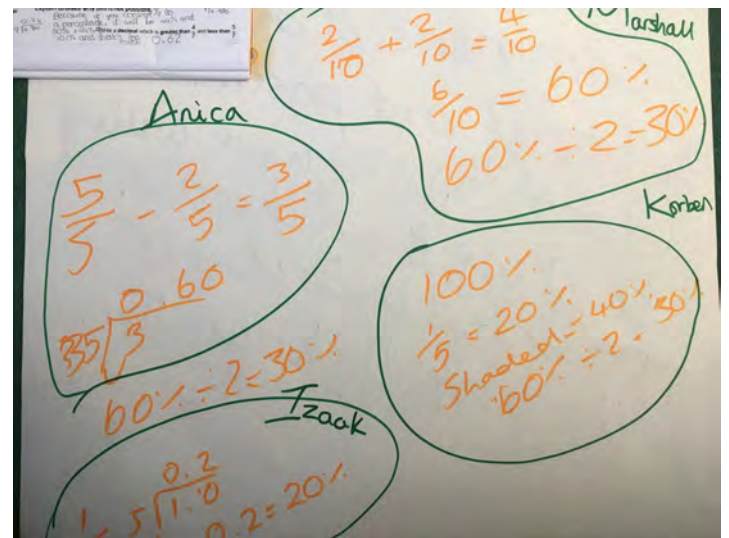 Marshall
2/10 + 2/10 = 4/10
6/10 = 60%
60% ÷ 2 = 30%
Anica
5/5 - 2/5 = 3/5
0.60
3
60% ÷ 2 = 30%
Korben
100%
1/5 = 20%
Shaded = 40%
60% ÷ 2 = 30%
Izaak
0.2
5 1.0
0.2 = 20%